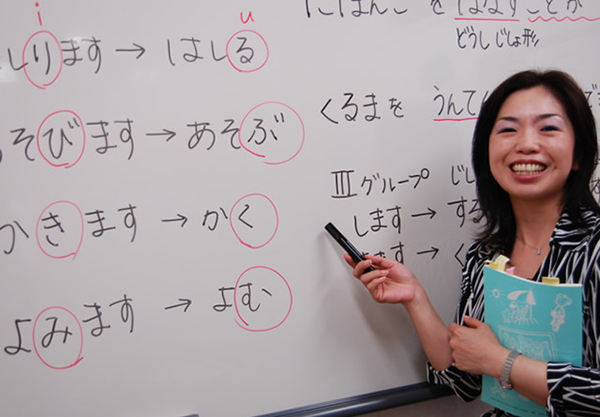 i u
しります → はしる
そびます → あそぶ
かきます → かく
よみます → よむ
にほんごを はなすことが
どうしじしょ形
くるまを うんて
Ⅲグループ じし
します → する
ます → く